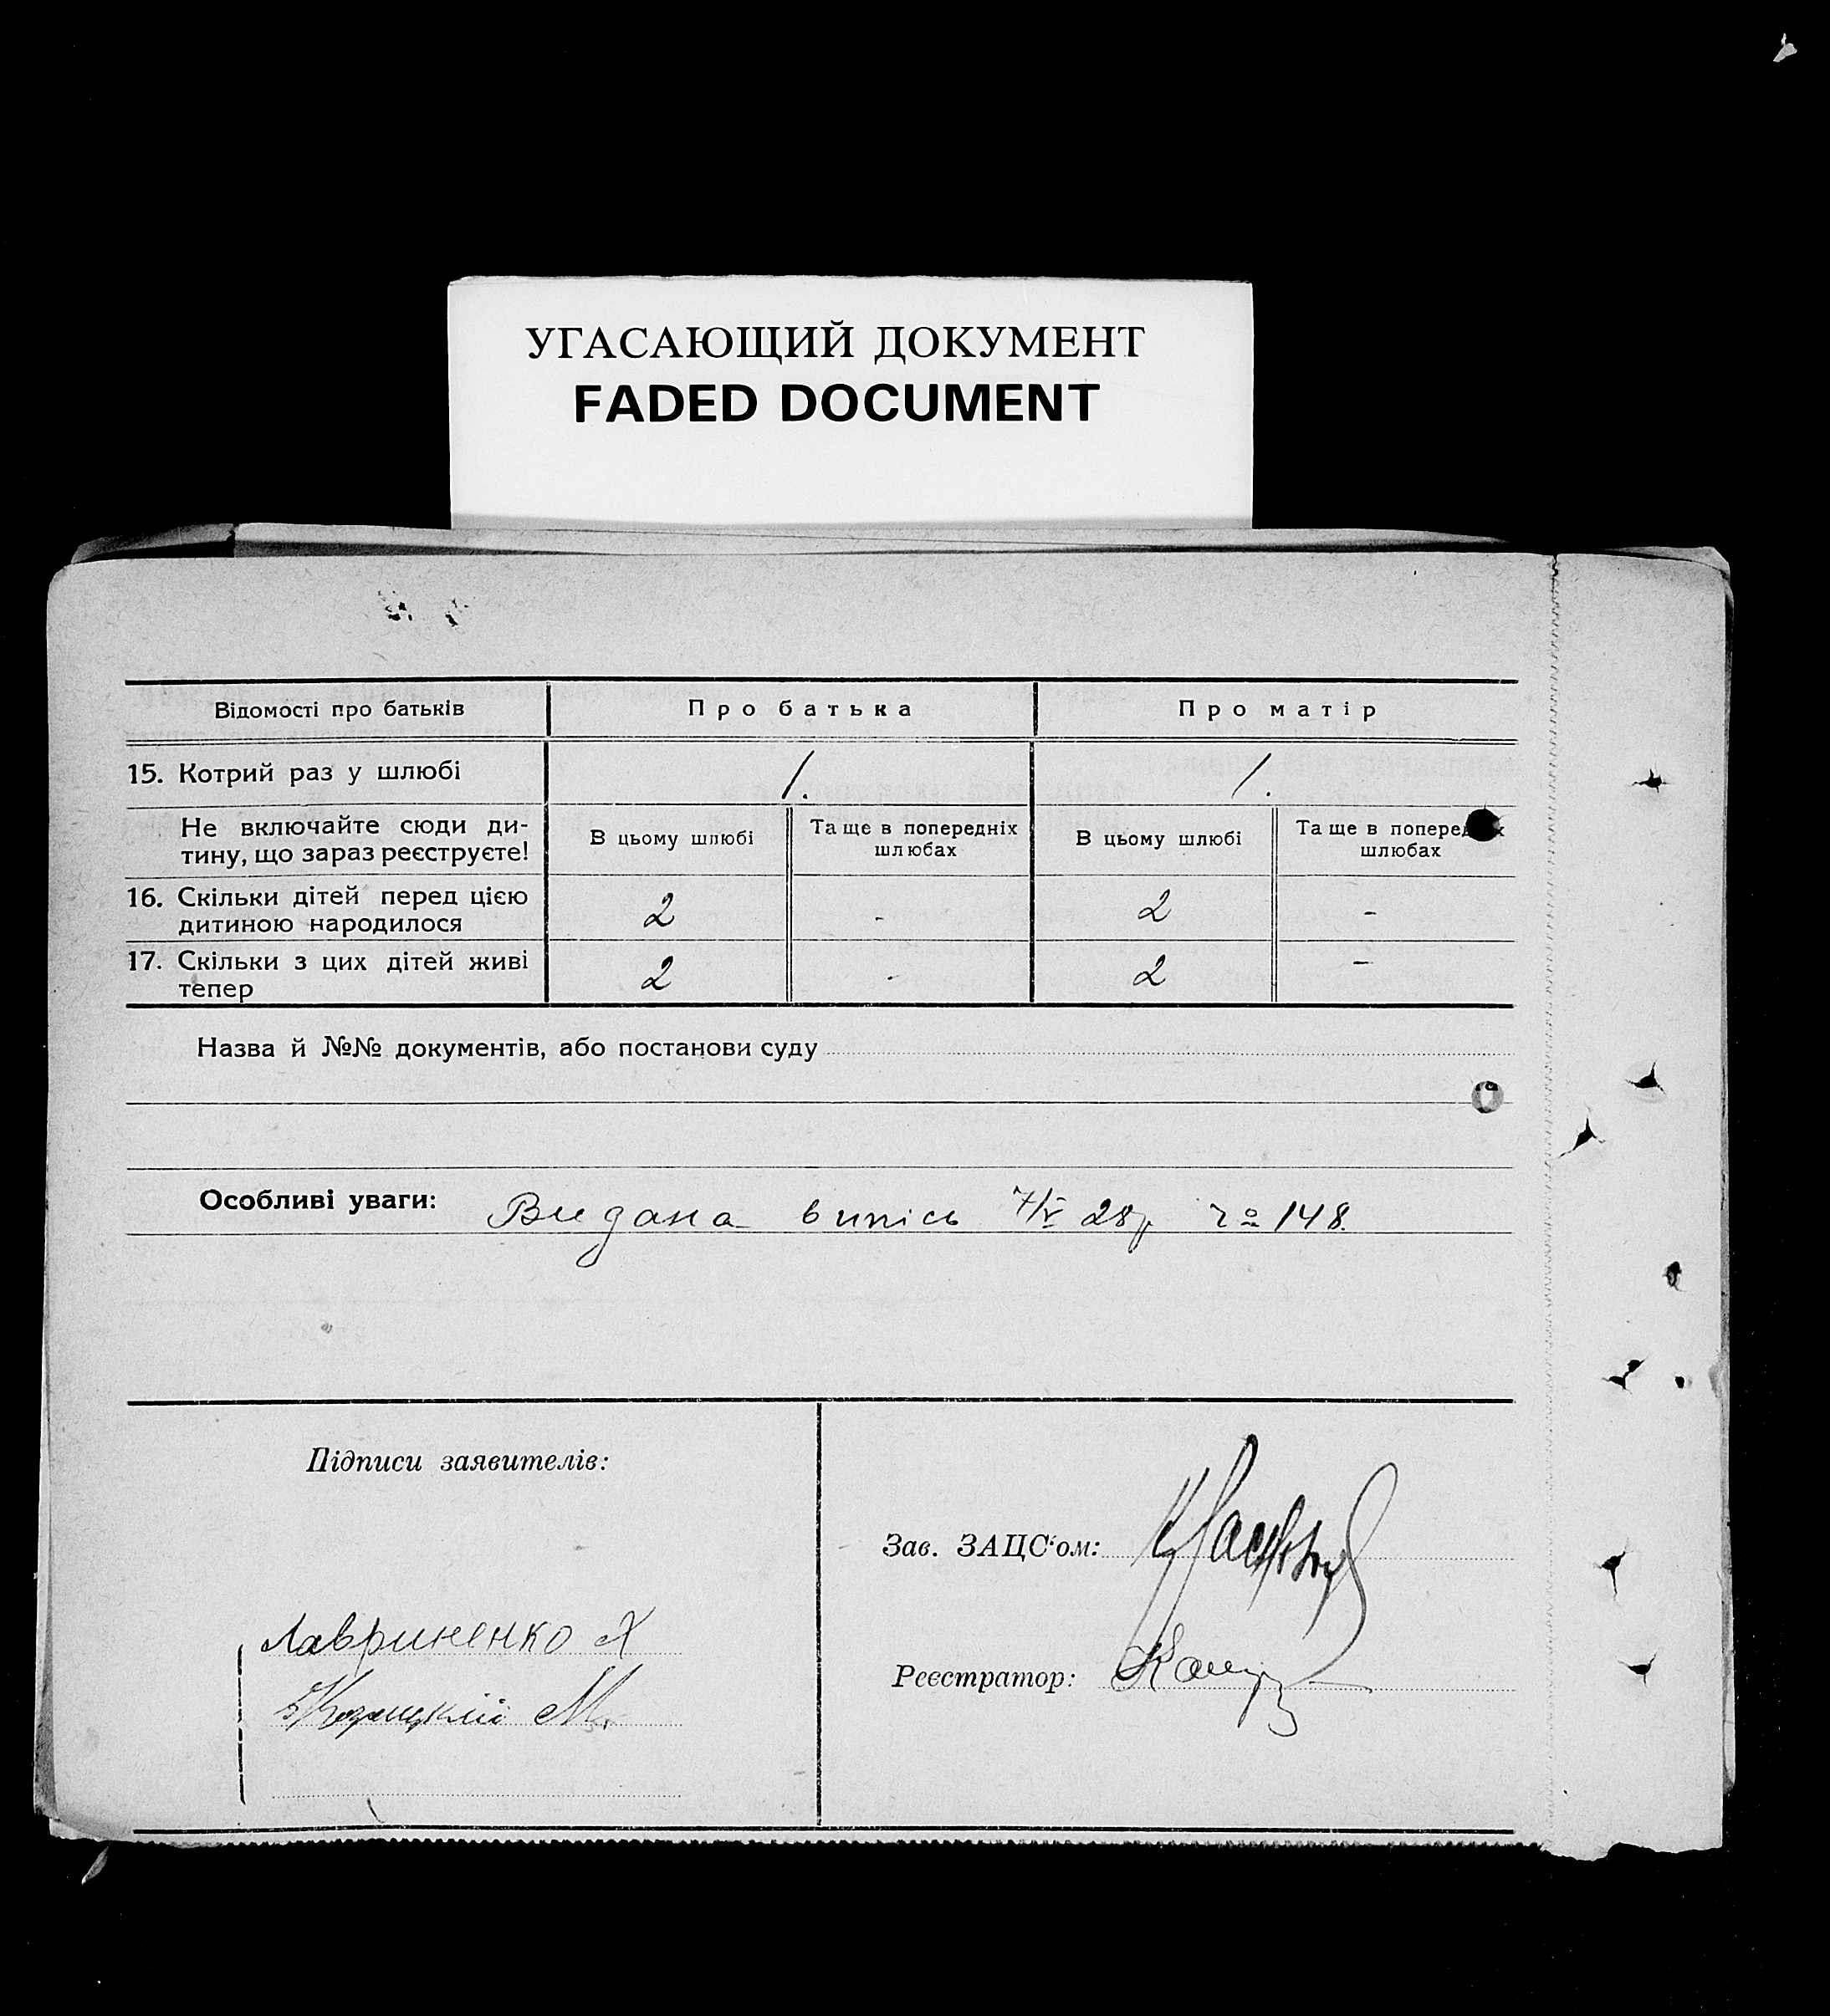 УГАСАЮЩИЙ ДОКУМЕНТ
FADED DOCUMENT
Відомості про батьків
Про батька
Про матір
15. Котрий раз у шлюбі
1.
1.
Не включайте сюди ди-
тину, що зараз реєструєте!
В цьому шлюбі
Та ще в попередніх
шлюбах
В цьому шлюбі
Та ще в поперед х
шлюбах
16. Скільки дітей перед цією
дитиною народилося
2
-
2
-
17. Скільки з цих дітей живі
тепер
2
-
2
-
Назва й №№ документів, або постанови суду
Особливі уваги: Видана випісь 7/V 28р ч о 148.
Підписи заявителів:
Лавриненко Х
М.
Зав. ЗАЦС'ом:
Реєстратор: